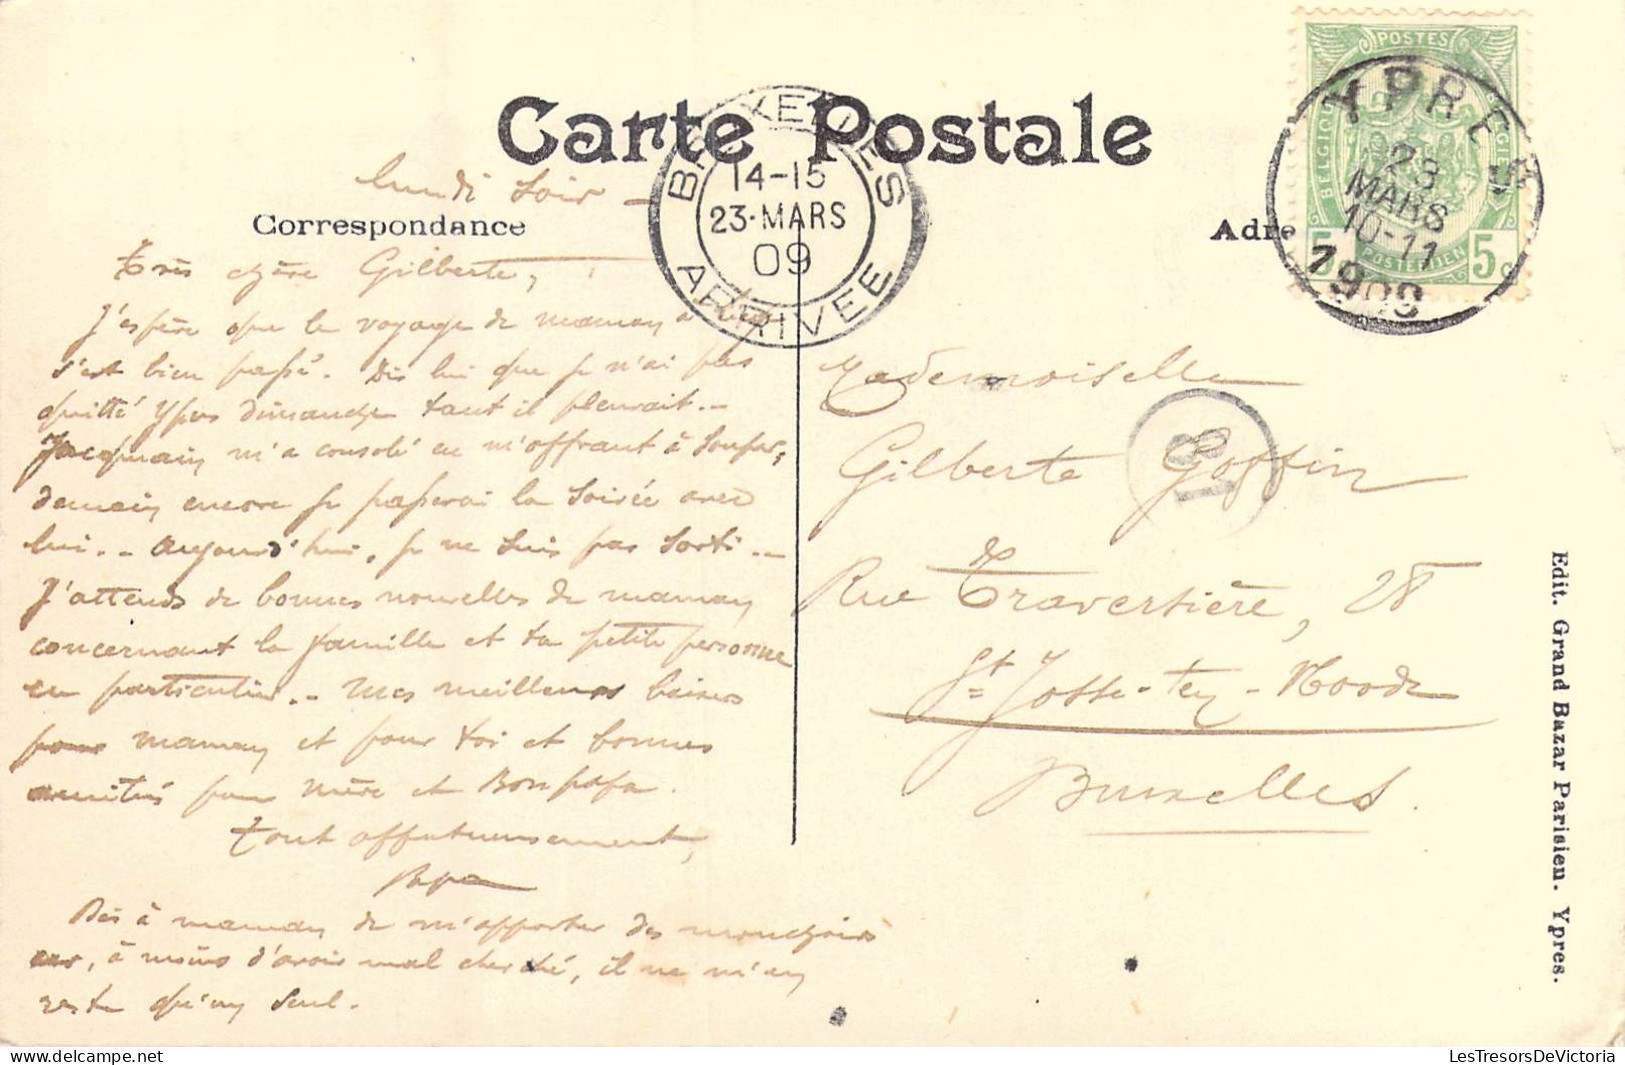 Carte Postale
lundi soir
Correspondance
Très chère Gilberte,
J'espère que le voyage de maman à
s'est bien passé. Dis lui que je n'ai pas
quitté Ypres dimanche tant il pleuvait. -
Jacqmain m'a consolé en m'offrant à souper,
demain encore je passerai la soirée avec
lui. - Aujourd'hui, je ne suis pas sorti. -
J'attends de bonnes nouvelles de maman
concernant la famille et ta petite personne
en particulier. - Mes meilleurs baisers
pour maman et pour toi et bonnes
amitiés pour mère et Bon papa.
Tout affectueusement,
Papa
Dis à maman de m'apporter des mouchoirs
car, à moins d'avoir mal cherché, il ne m'en
reste qu'un seul.
BRUXELLES
14-15
23·MARS
09
ARRIVEE
POSTES
BELGIQUE
BELGIË
POSTERIJEN
5 5c
YPRES
23
MARS
10-11
1909
Adre
18
Mademoiselle
Gilberte Goffin
Rue Traversière, 28
St Josse-ten-Noode
Bruxelles.
Edit. Grand Bazar Parisien. Ypres.
LesTresorsDeVictoria